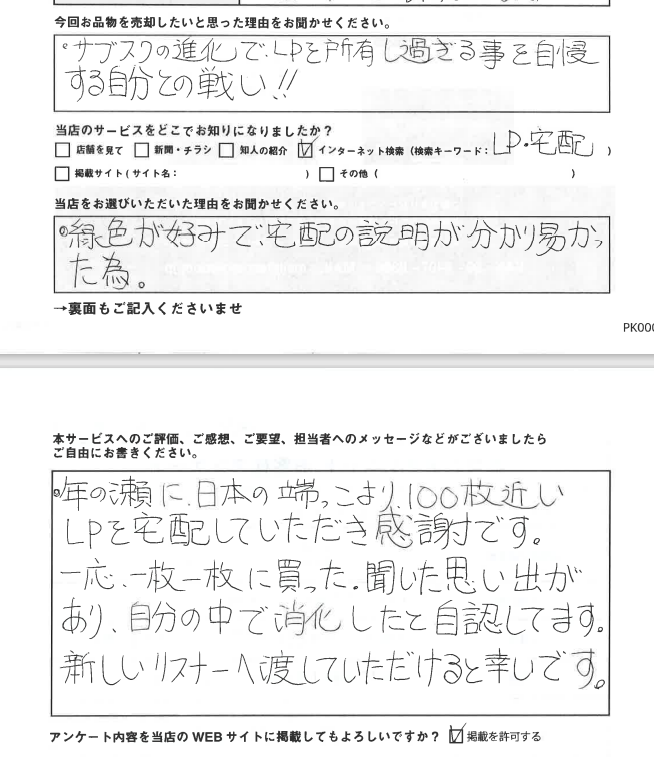 今回お品物を売却したいと思った理由をお聞かせください。
・サブスクの進化で、LPを所有し過ぎる事を自慢
する自分との戦い!!
当店のサービスをどこでお知りになりましたか?
□ 店舗を見て □ 新聞・チラシ □ 知人の紹介 ☑ インターネット検索(検索キーワード: LP・宅配 )
□ 掲載サイト(サイト名: ) □ その他( )
当店をお選びいただいた理由をお聞かせください。
・緑色が好みで、宅配の説明が分かり易かっ
た為。
→裏面もご記入くださいませ
PK000
本サービスへのご評価、ご感想、ご要望、担当者へのメッセージなどがございましたら
ご自由にお書きください。
・年の瀬に、日本の端っこより、100枚近い
LPを宅配していただき感謝です。
一応、一枚一枚に買った、聞いた思い出が
あり、自分の中で消化したと自認してます。
新しいリスナーへ渡していただけると幸いです。
アンケート内容を当店の WEB サイトに掲載してもよろしいですか? ☑ 掲載を許可する